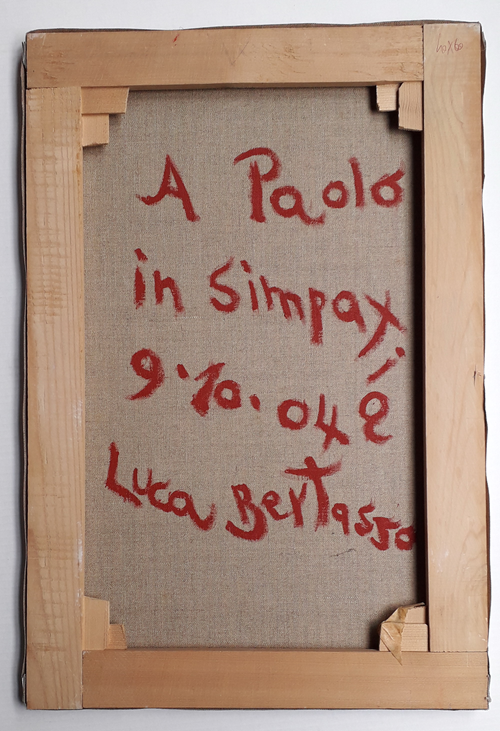 40x60
A Paolo
in Simpaxi
9.10.04
Luca Bertasso